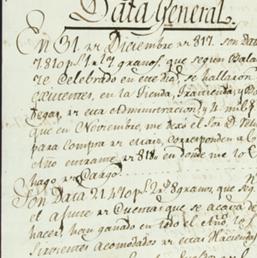 Data General.
En 31 de Diciembre de 817. son data
7810 ps 1 rl 7 granos, que segun Balan
ze Celebrado en este dia, se hallaron
existentes, en la Tienda,
begas, de esta Administracion, y 4 mil
que en Noviembre, me dexó el Sor D.
para compra de maiz, corresponden a C
Año entrante de 818 en donde me lo
hago de Cargo.
Son Data 21.410 ps 2 rs 8 granos, que seg
el ajuste de Cuentas que se acaba de
hacer, han ganado en todo el Año, lo
Sirvientes acomodados de estas Haciendas